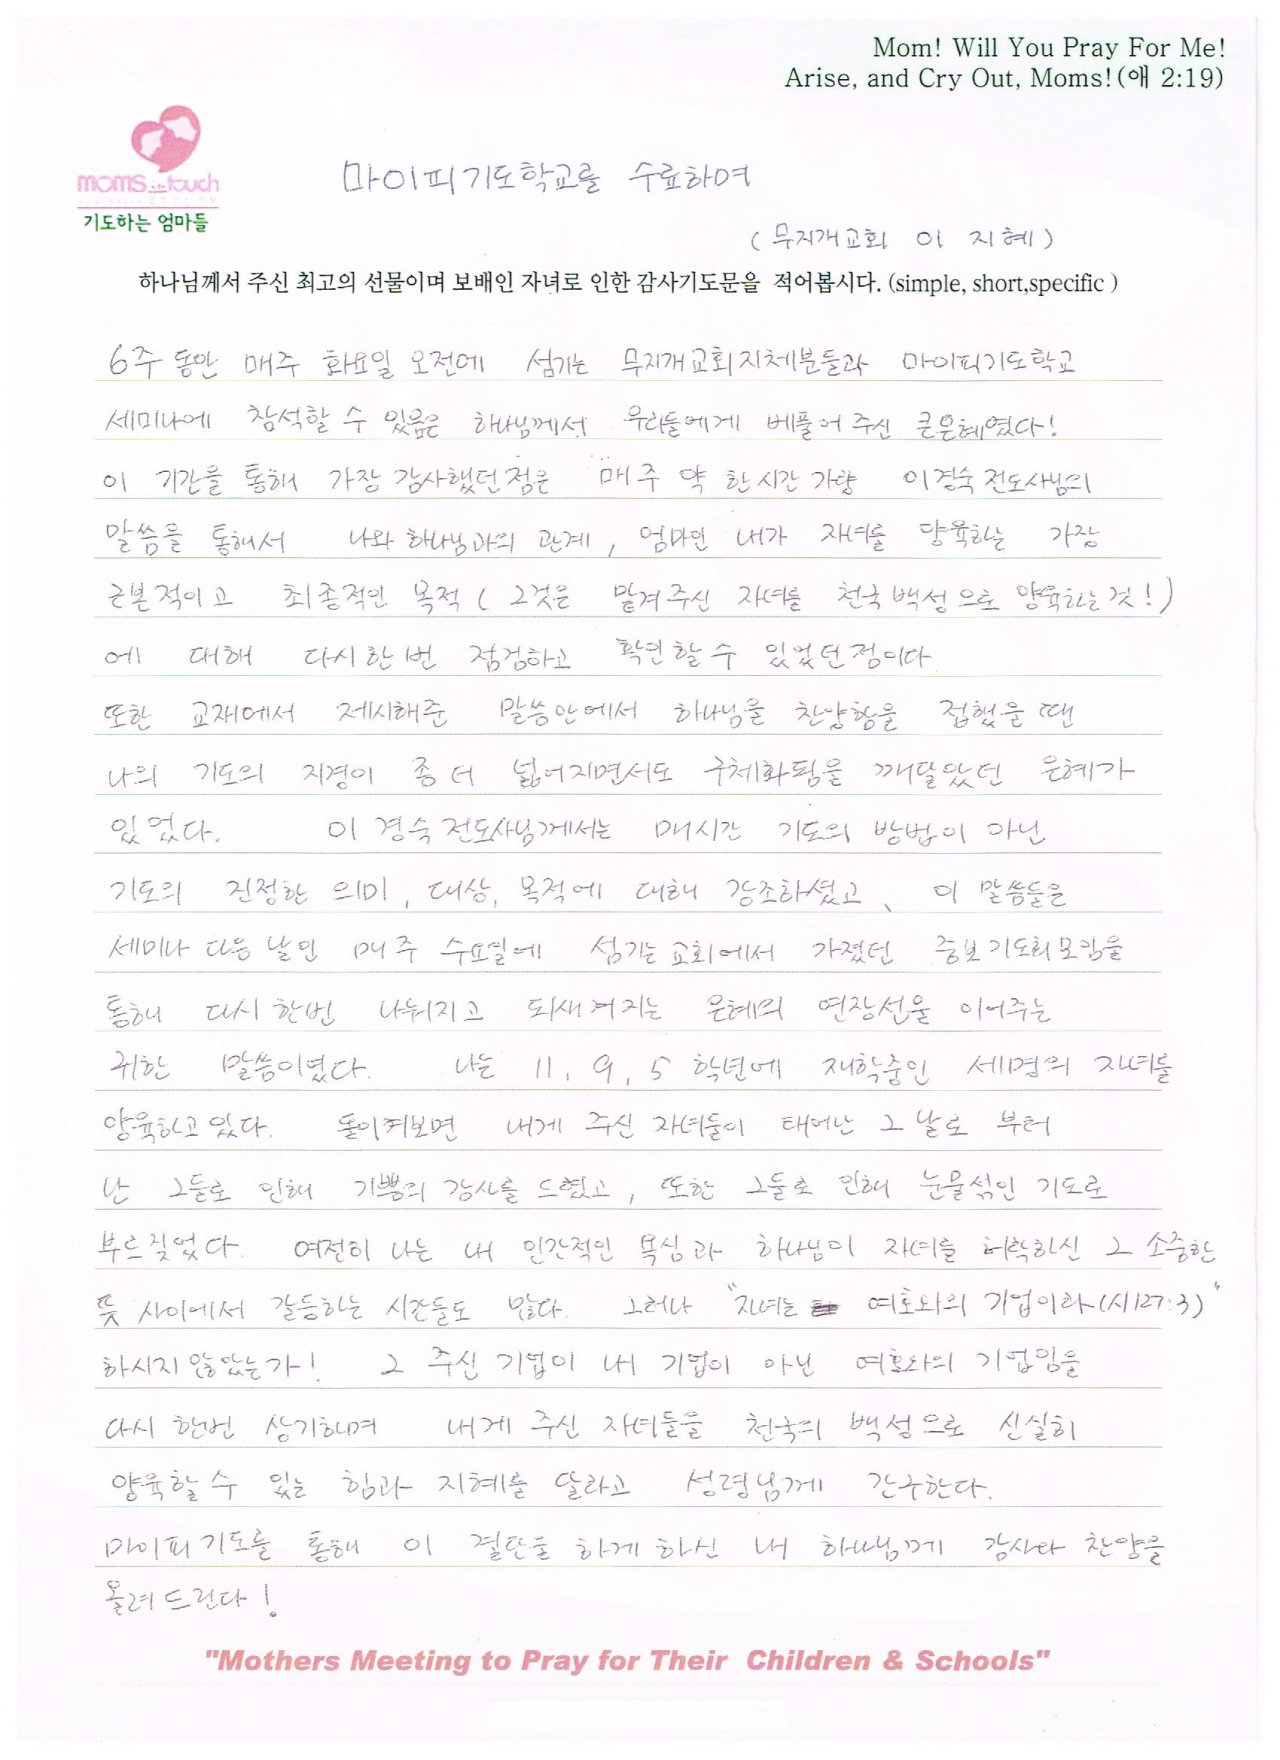 Mom! Will You Pray For Me!
Arise, and Cry Out, Moms!(애 2:19)
moms in touch
기도하는 엄마들
마이피기도학교를 수료하며
( 무지개교회 이 지혜 )
하나님께서 주신 최고의 선물이며 보배인 자녀로 인한 감사기도문을 적어봅시다. (simple, short,specific )
6주 동안 매주 화요일 오전에 섬기는 무지개교회지체분들과 마이피기도학교
세미나에 참석할 수 있음은 하나님께서 우리들에게 베풀어 주신 큰은혜였다!
이 기간을 통해 가장 감사했던점은 매주 약 한시간 가량 이경숙 전도사님의
말씀을 통해서 나와 하나님과의 관계, 엄마인 내가 자녀를 양육하는 가장
근본적이고 최종적인 목적 ( 그것은 맡겨주신 자녀를 천국 백성으로 양육하는것!)
에 대해 다시한번 점검하고 확인할수 있었던점이다.
또한 교재에서 제시해준 말씀안에서 하나님을 찬양함을 접했을때
나의 기도의 지경이 좀 더 넓어지면서도 구체화됨을 깨달았던 은혜가
있었다. 이 경숙 전도사님께서는 매시간 기도의 방법이 아닌
기도의 진정한 의미, 대상, 목적에 대해 강조하셨고, 이 말씀들은
세미나 다음 날인 매주 수요일에 섬기는 교회에서 가졌던 중보기도회모임을
통해 다시 한번 나눠지고 되새겨지는 은혜의 연장선을 이어주는
귀한 말씀이였다. 나는 11, 9, 5 학년에 재학중인 세명의 자녀를
양육하고 있다. 돌이켜보면 내게 주신 자녀들이 태어난 그 날로 부터
난 그들로 인해 기쁨의 감사를 드렸고, 또한 그들로 인해 눈물섞인 기도로
부르짖었다. 여전히 나는 내 인간적인 욕심과 하나님이 자녀를 허락하신 그 소중한
뜻 사이에서 갈등하는 시간들도 많다. 그러나 "자녀는 여호와의 기업이라(시127:3)"
하시지 않았는가! 그 주신 기업이 내 기업이 아닌 여호와의 기업임을
다시 한번 상기하며 내게 주신 자녀들을 천국의 백성으로 신실히
양육할 수 있는 힘과 지혜를 달라고 성령님께 간구한다.
마이피 기도를 통해 이 결단을 하게 하신 내 하나님께 감사와 찬양을
올려 드린다!
"Mothers Meeting to Pray for Their Children & Schools"